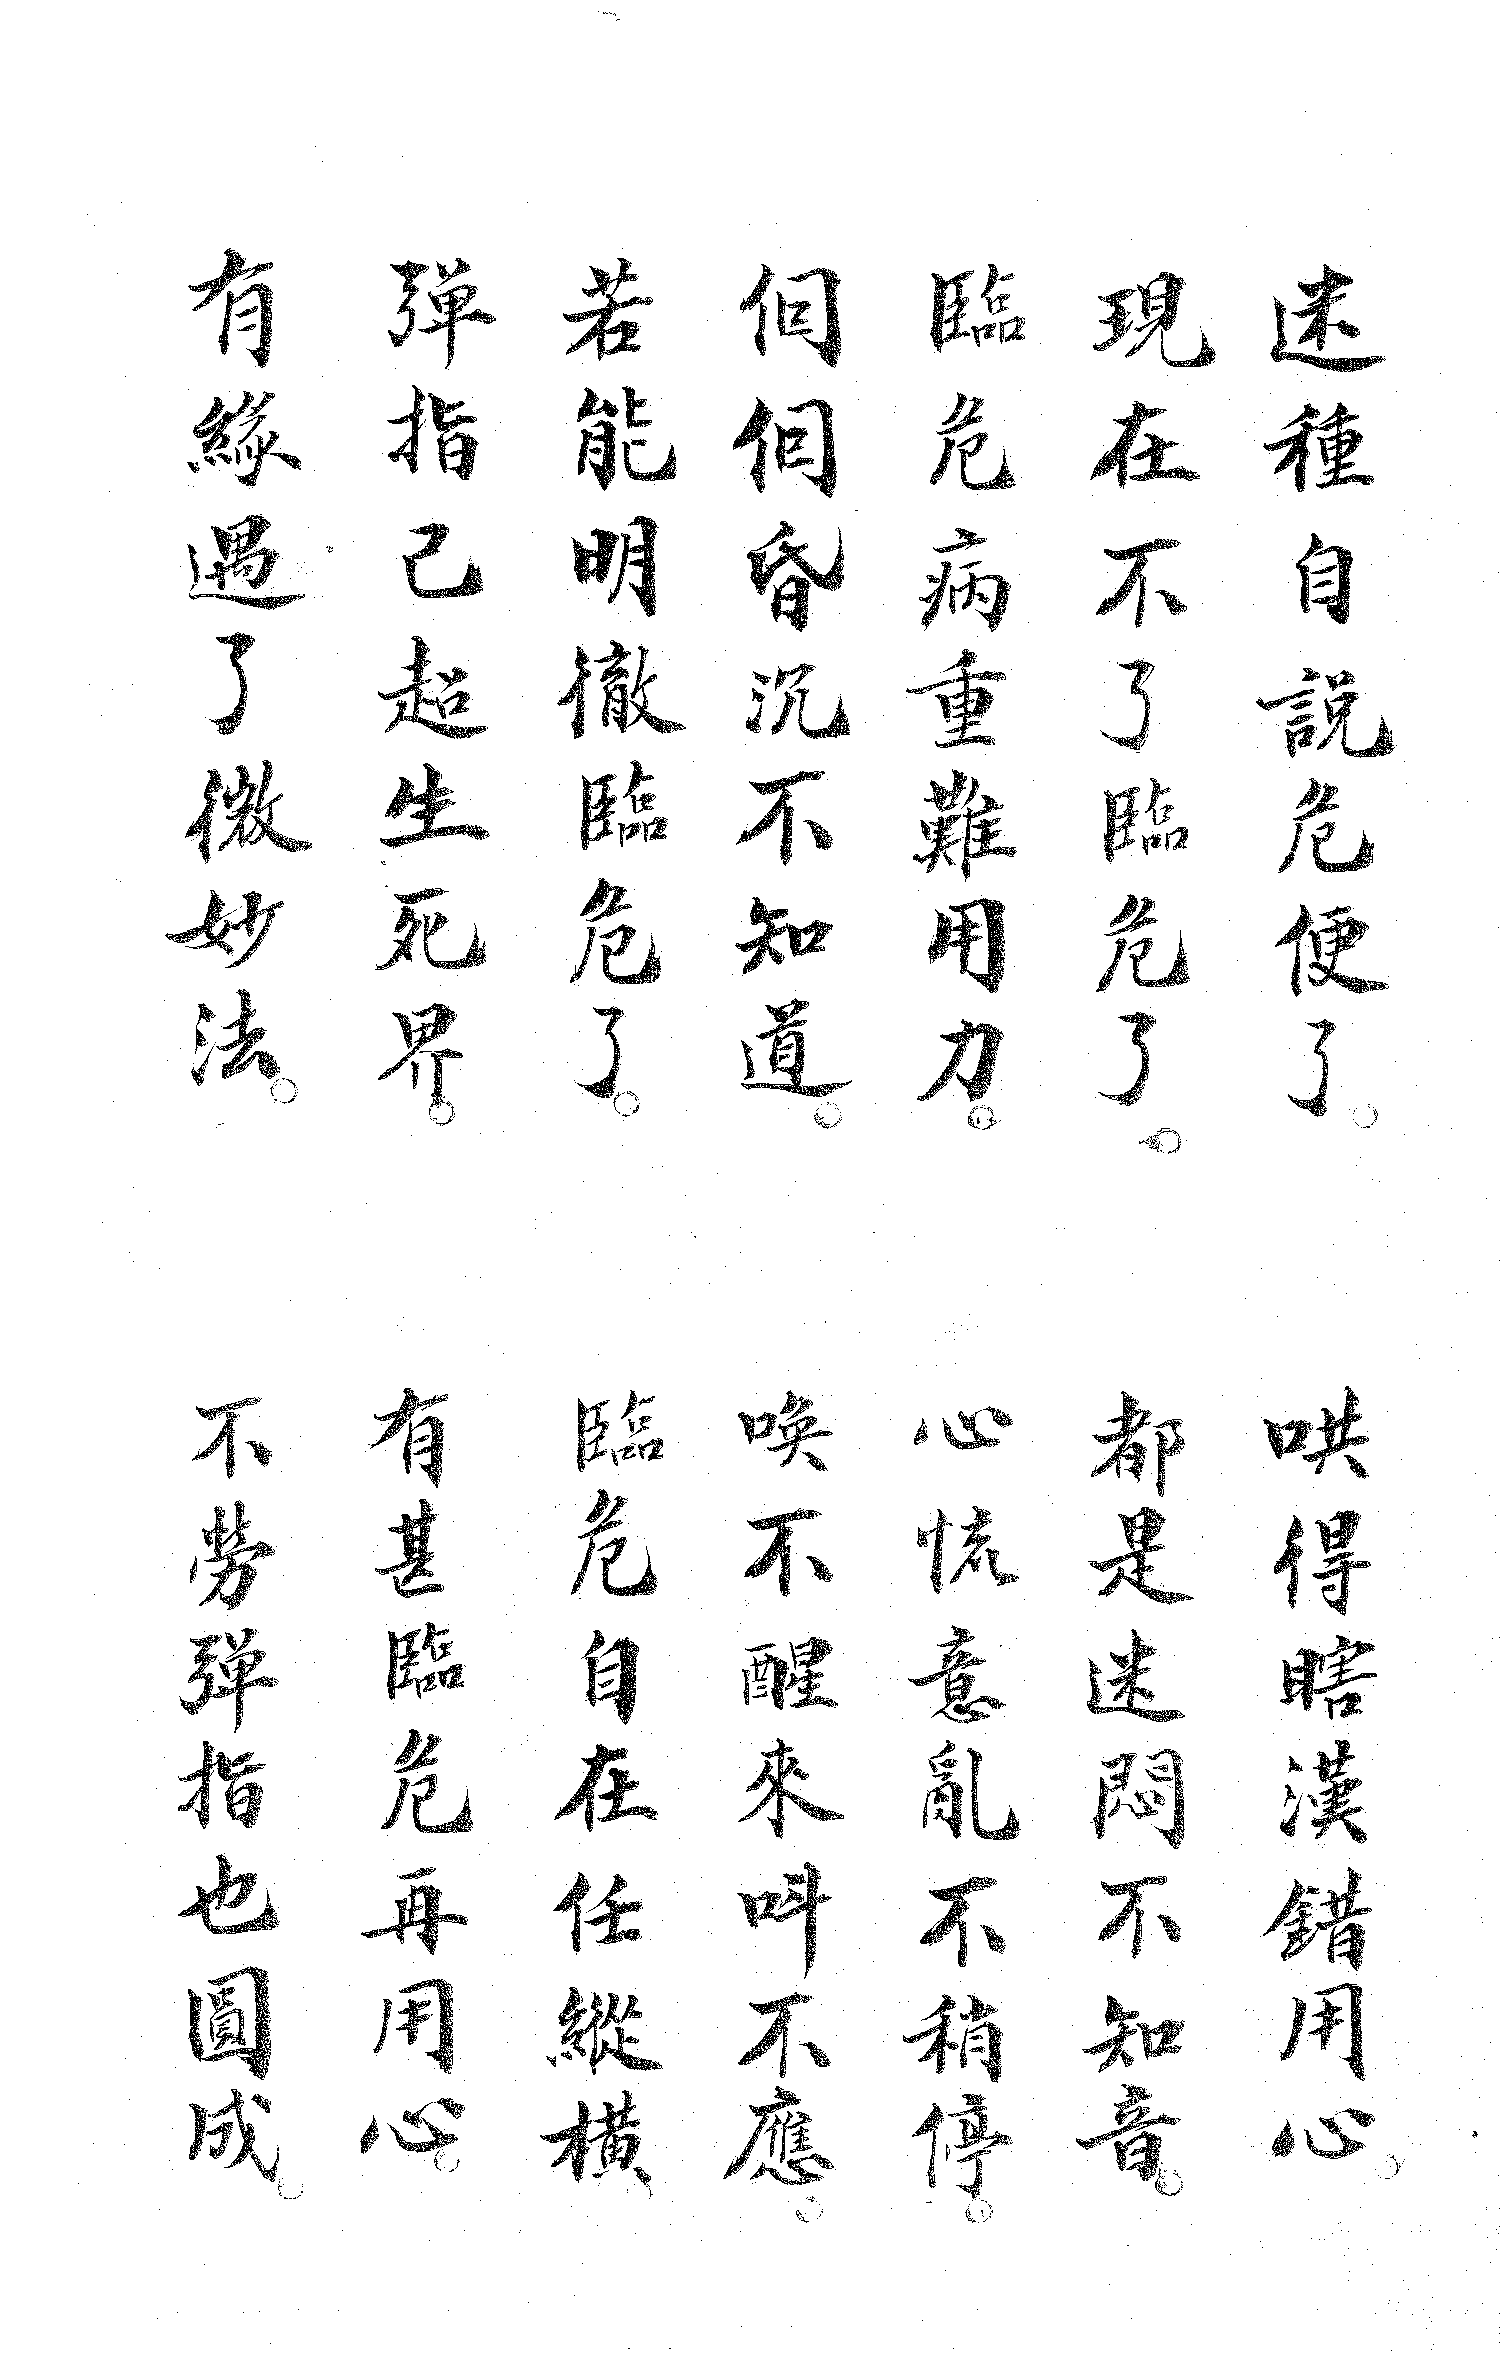 迷種自説危便了。
哄得瞎漢錯用心。
現在不了臨危了。
都是迷悶不知音。
臨危病重難用力。
心慌意亂不稍停。
個個昏沉不知道。
喚不醒來叫不應。
若能明徹臨危了。
臨危自在任縱橫
彈指已超生死界。
有甚臨危再用心。
有緣遇了微妙法。
不勞彈指也圓成。